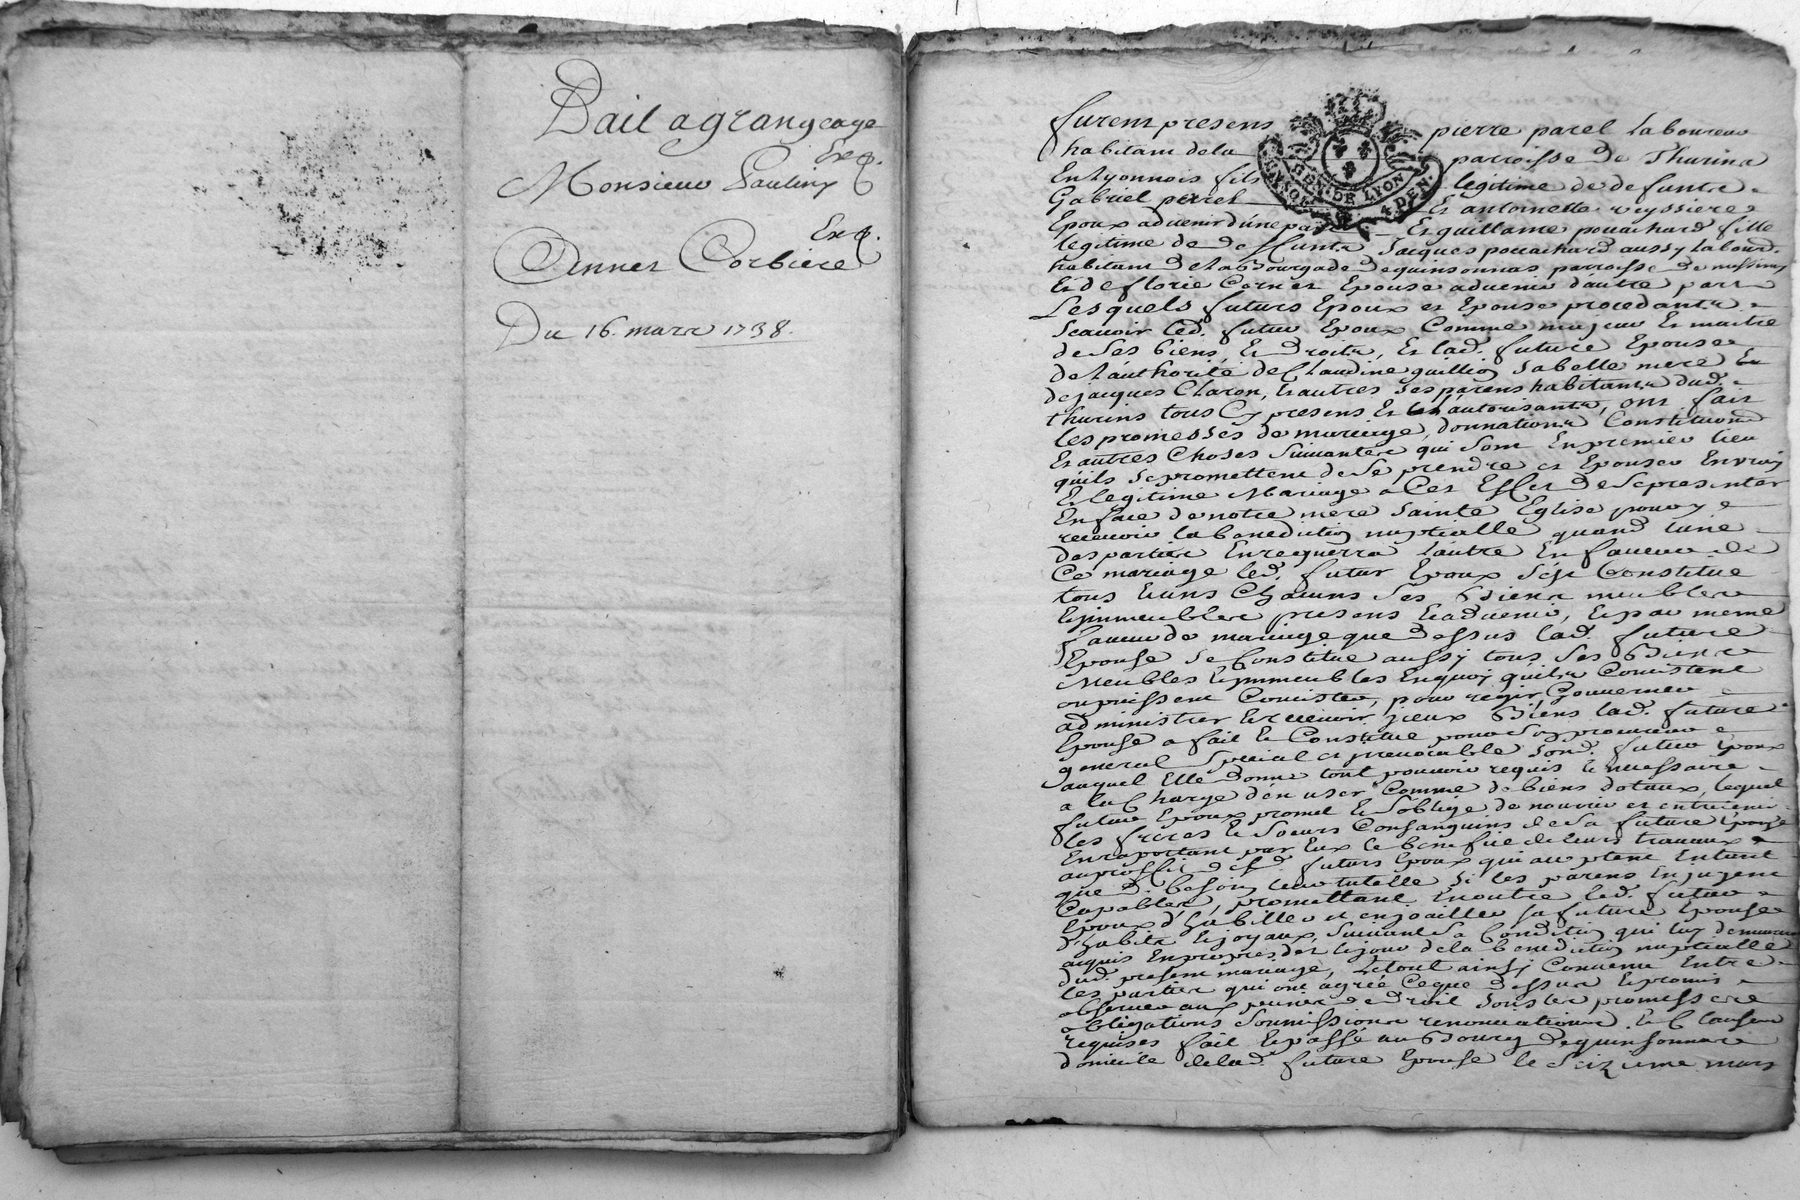 Bail a grangeage
Exp.
Monsieur Paulin
Exp.
Annet Corbiere
Du 16. mars 1738.
furent presens pierre parel Laboureur
habitant de la parroisse de Thurins
En Lyonnois fils legitime de defunts
Gabriel perret Et antoinette veyssiere
Epoux advenir d'une part Et guillame pouachard fille
legitime de deffunts Jacques pouachard aussy Labour.
habitant de la Bourgade de quinsonnas parroisse de messimy
Et de florie Cornet Epouse advenir d'autre part
Les quels futurs Epoux et Epouse procedants
Scauoir led. futur Epoux Comme majeur Et maitre
de Ses biens, Et Droits, Et lad. future Epouse
de L'authorité de Claudine guillion Sa belle mere Et
de jacques Claron, Et autres Ses parens habitants dud.
thurins tous Cy presens Et l'autorisants, ont fait
les promesses de mariage, donnations Constitutions
Et autres Choses Suivantes qui Sont En premier lieu
qu'ils Se promettent de Se prendre et Epouser En vray
Et legitime Mariage a Cet Effet de Se presenter
En face de notre mere Sainte Eglise pour y
recevoir la benediction nuptialle quand l'une
des parties En requerra L'autre En faveur de
Ce mariage led. futur Epoux S'est Constitué
tous Et uns Chacuns Ses Biens meubles
Et immeubles presens Et advenir, Et par meme
faveur de mariage que dessus lad. future
Epouse Se Constitue aussy tous Ses Biens
Meubles Et immeubles En quoy qu'ils Consistent
ou puissent Consister, pour regir, Gouverner
administrer Et recevoir yceux Biens lad. future
Epouse a fait Et Constitué pour Son procureur
general Special et irrevocable Sond. futur Epoux
auquel Elle donne tout pouvoir requis Et necessaire
a la Charge d'en user Comme de biens dotaux, lequel
futur Epoux promet Et S'oblige de nourrir et entretenir
les freres Et Soeurs Consanguins de Sa future Epouse
En raportant par Eux le benefice de leurs travaux
au proffit desd. futurs Epoux qui acceptent Entant
que de besoin leur tutelle Si les parens En jugent
Capables, promettant En outre led. futur
Epoux d'habiller et enjoailler Sa future Epouse
d'habits Et joyaux Suivant Sa Condition qui luy demeureront
acquis En propres des le jour de la benediction nuptialle
dud. present mariage, Le tout ainsy Convenu Entre
les parties qui ont agreé Ceque dessus Et promis
observer aux peines de droit Sous les promesses
obligations Soumissions renonciations Et Clauses
requises fait Et passé au Bourg de quinsonnas
domicile de lad. future Epouse le Seizieme mars
GEN. DE LYON
4 DEN.